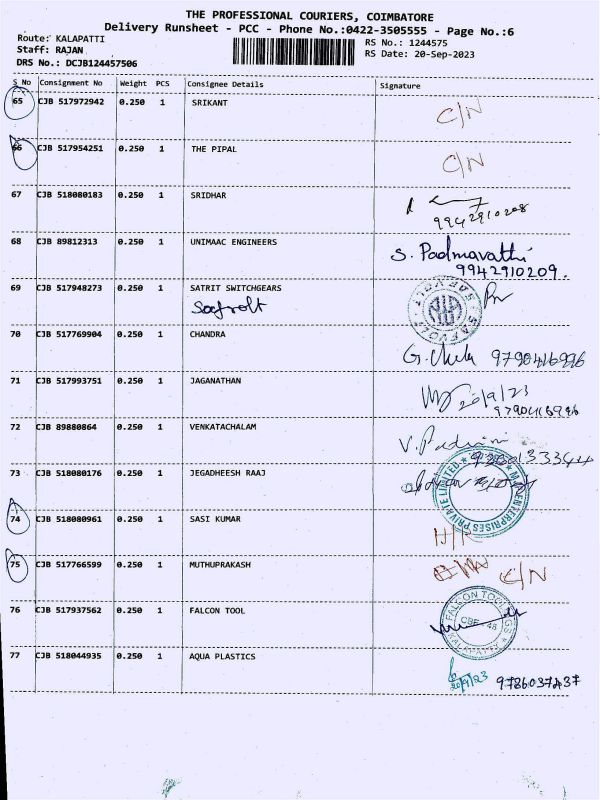 THE PROFESSIONAL COURIERS, COIMBATORE
Delivery Runsheet - PCC - Phone No.:0422-3505555 - Page No.:6
Route: KALAPATTI RS No.: 1244575
Staff: RAJAN RS Date: 20-Sep-2023
DRS No.: DCJB124457506
S No Consignment No Weight PCS Consignee Details Signature
65 CJB 517972942 0.250 1 SRIKANT C/N
66 CJB 517954251 0.250 1 THE PIPAL C/N
67 CJB 518080183 0.250 1 SRIDHAR
9942910208
68 CJB 89812313 0.250 1 UNIMAAC ENGINEERS S. Padmavathi
9942910209.
69 CJB 517948273 0.250 1 SATRIT SWITCHGEARS
Safvolt
70 CJB 517769904 0.250 1 CHANDRA
9790416996
71 CJB 517993751 0.250 1 JAGANATHAN 20/9/23
9790416996
72 CJB 89880864 0.250 1 VENKATACHALAM
73 CJB 518080176 0.250 1 JEGADHEESH RAAJ
ENTERPRISES PRIVATE LIMITED
74 CJB 518080961 0.250 1 SASI KUMAR
75 CJB 517766599 0.250 1 MUTHUPRAKASH C/N
76 CJB 517937562 0.250 1 FALCON TOOL
FALCON TOOLINGS
CBE - 48
KALAPATTI
77 CJB 518044935 0.250 1 AQUA PLASTICS
20/9/23 9786037437